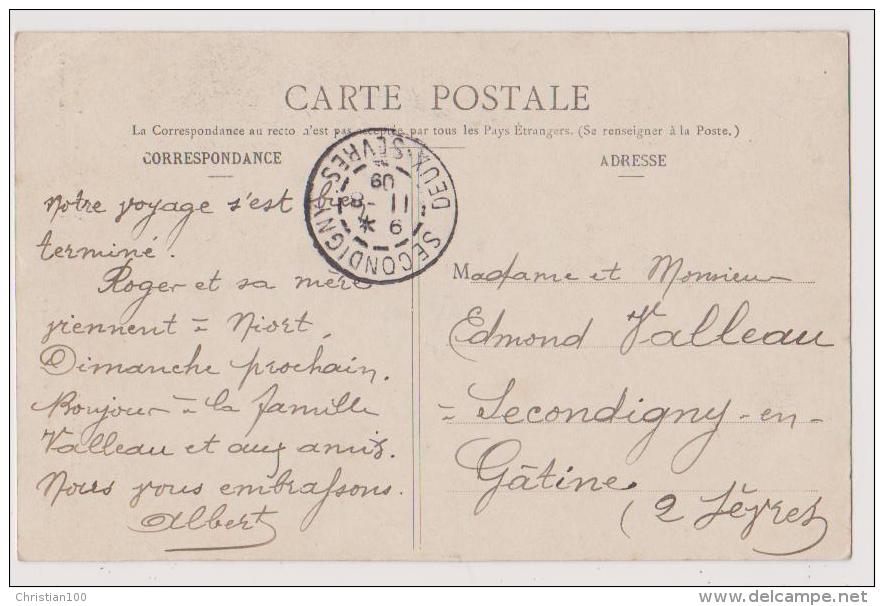 CARTE POSTALE
La Correspondance au recto n'est pas acceptée par tous les Pays Étrangers. (Se renseigner à la Poste.)
CORRESPONDANCE
Notre voyage s'est bien
terminé.
Roger et sa mère
viennent à Niort
Dimanche prochain.
Bonjour à la famille
Valleau et aux amis.
Nous vous embrassons.
Albert
SECONDIGNY
DEUX-SÈVRES
6
11
09
ADRESSE
Madame et Monsieur
Edmond Valleau
à Secondigny-en-
Gâtine
(2 Sèvres)
Christian100
www.delcampe.net